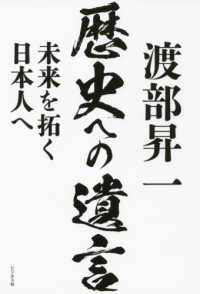 渡部昇一
歴史への遺言
未来を拓く
日本人へ
ビジネス社